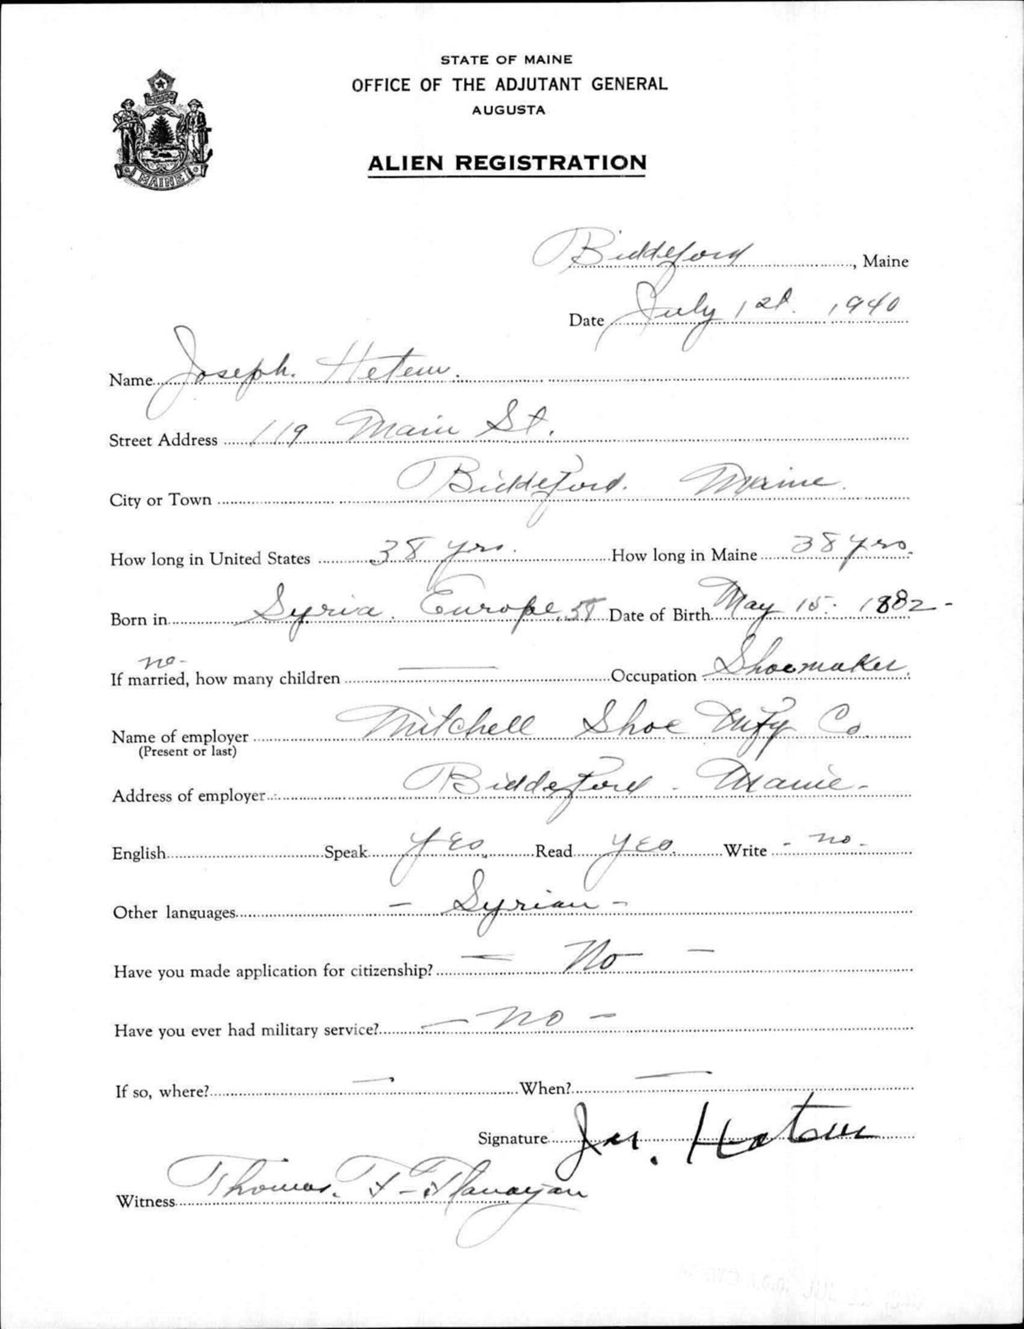 STATE OF MAINE
OFFICE OF THE ADJUTANT GENERAL
AUGUSTA
MAINE
ALIEN REGISTRATION
Biddeford, Maine
Date July 1st. 1940
Name Joseph. Hetem.
Street Address 119 Main St.
City or Town Biddeford. Maine.
How long in United States 38 yrs. How long in Maine 38 yrs.
Born in Syria. Europe. 58 Date of Birth May 15. 1882-
no-
If married, how many children — Occupation Shoemaker.
Name of employer Mitchell Shoe Mfy Co.
(Present or last)
Address of employer Biddeford. Maine.
English Speak yes. Read yes. Write - no.
Other languages - Syrian -
Have you made application for citizenship? - No -
Have you ever had military service? - no -
If so, where? — When? —
Signature Jos. Hetem
Witness Thomas. F- Flanagan